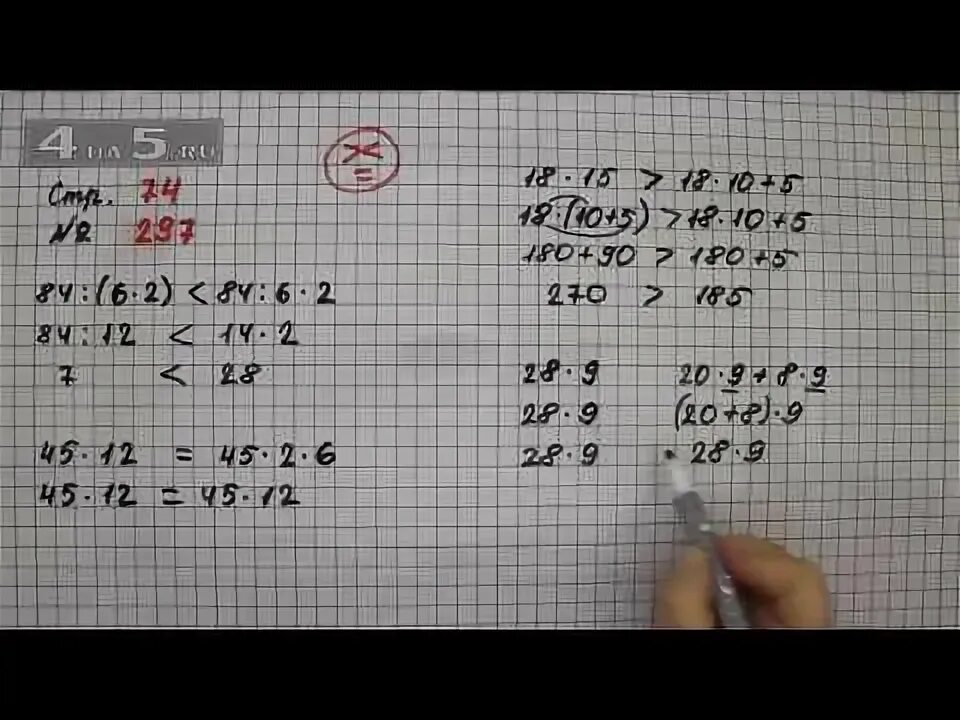 4 на 5.RU
Стр. 74
№ 297
><
=
84:(6·2) < 84:6·2
84:12 < 14·2
7 < 28
45·12 = 45·2·6
45·12 = 45·12
18·15 > 18·10+5
18·(10+5) > 18·10+5
180+90 > 180+5
270 > 185
28·9 20·9+8·9
28·9 (20+8)·9
28·9 28·9